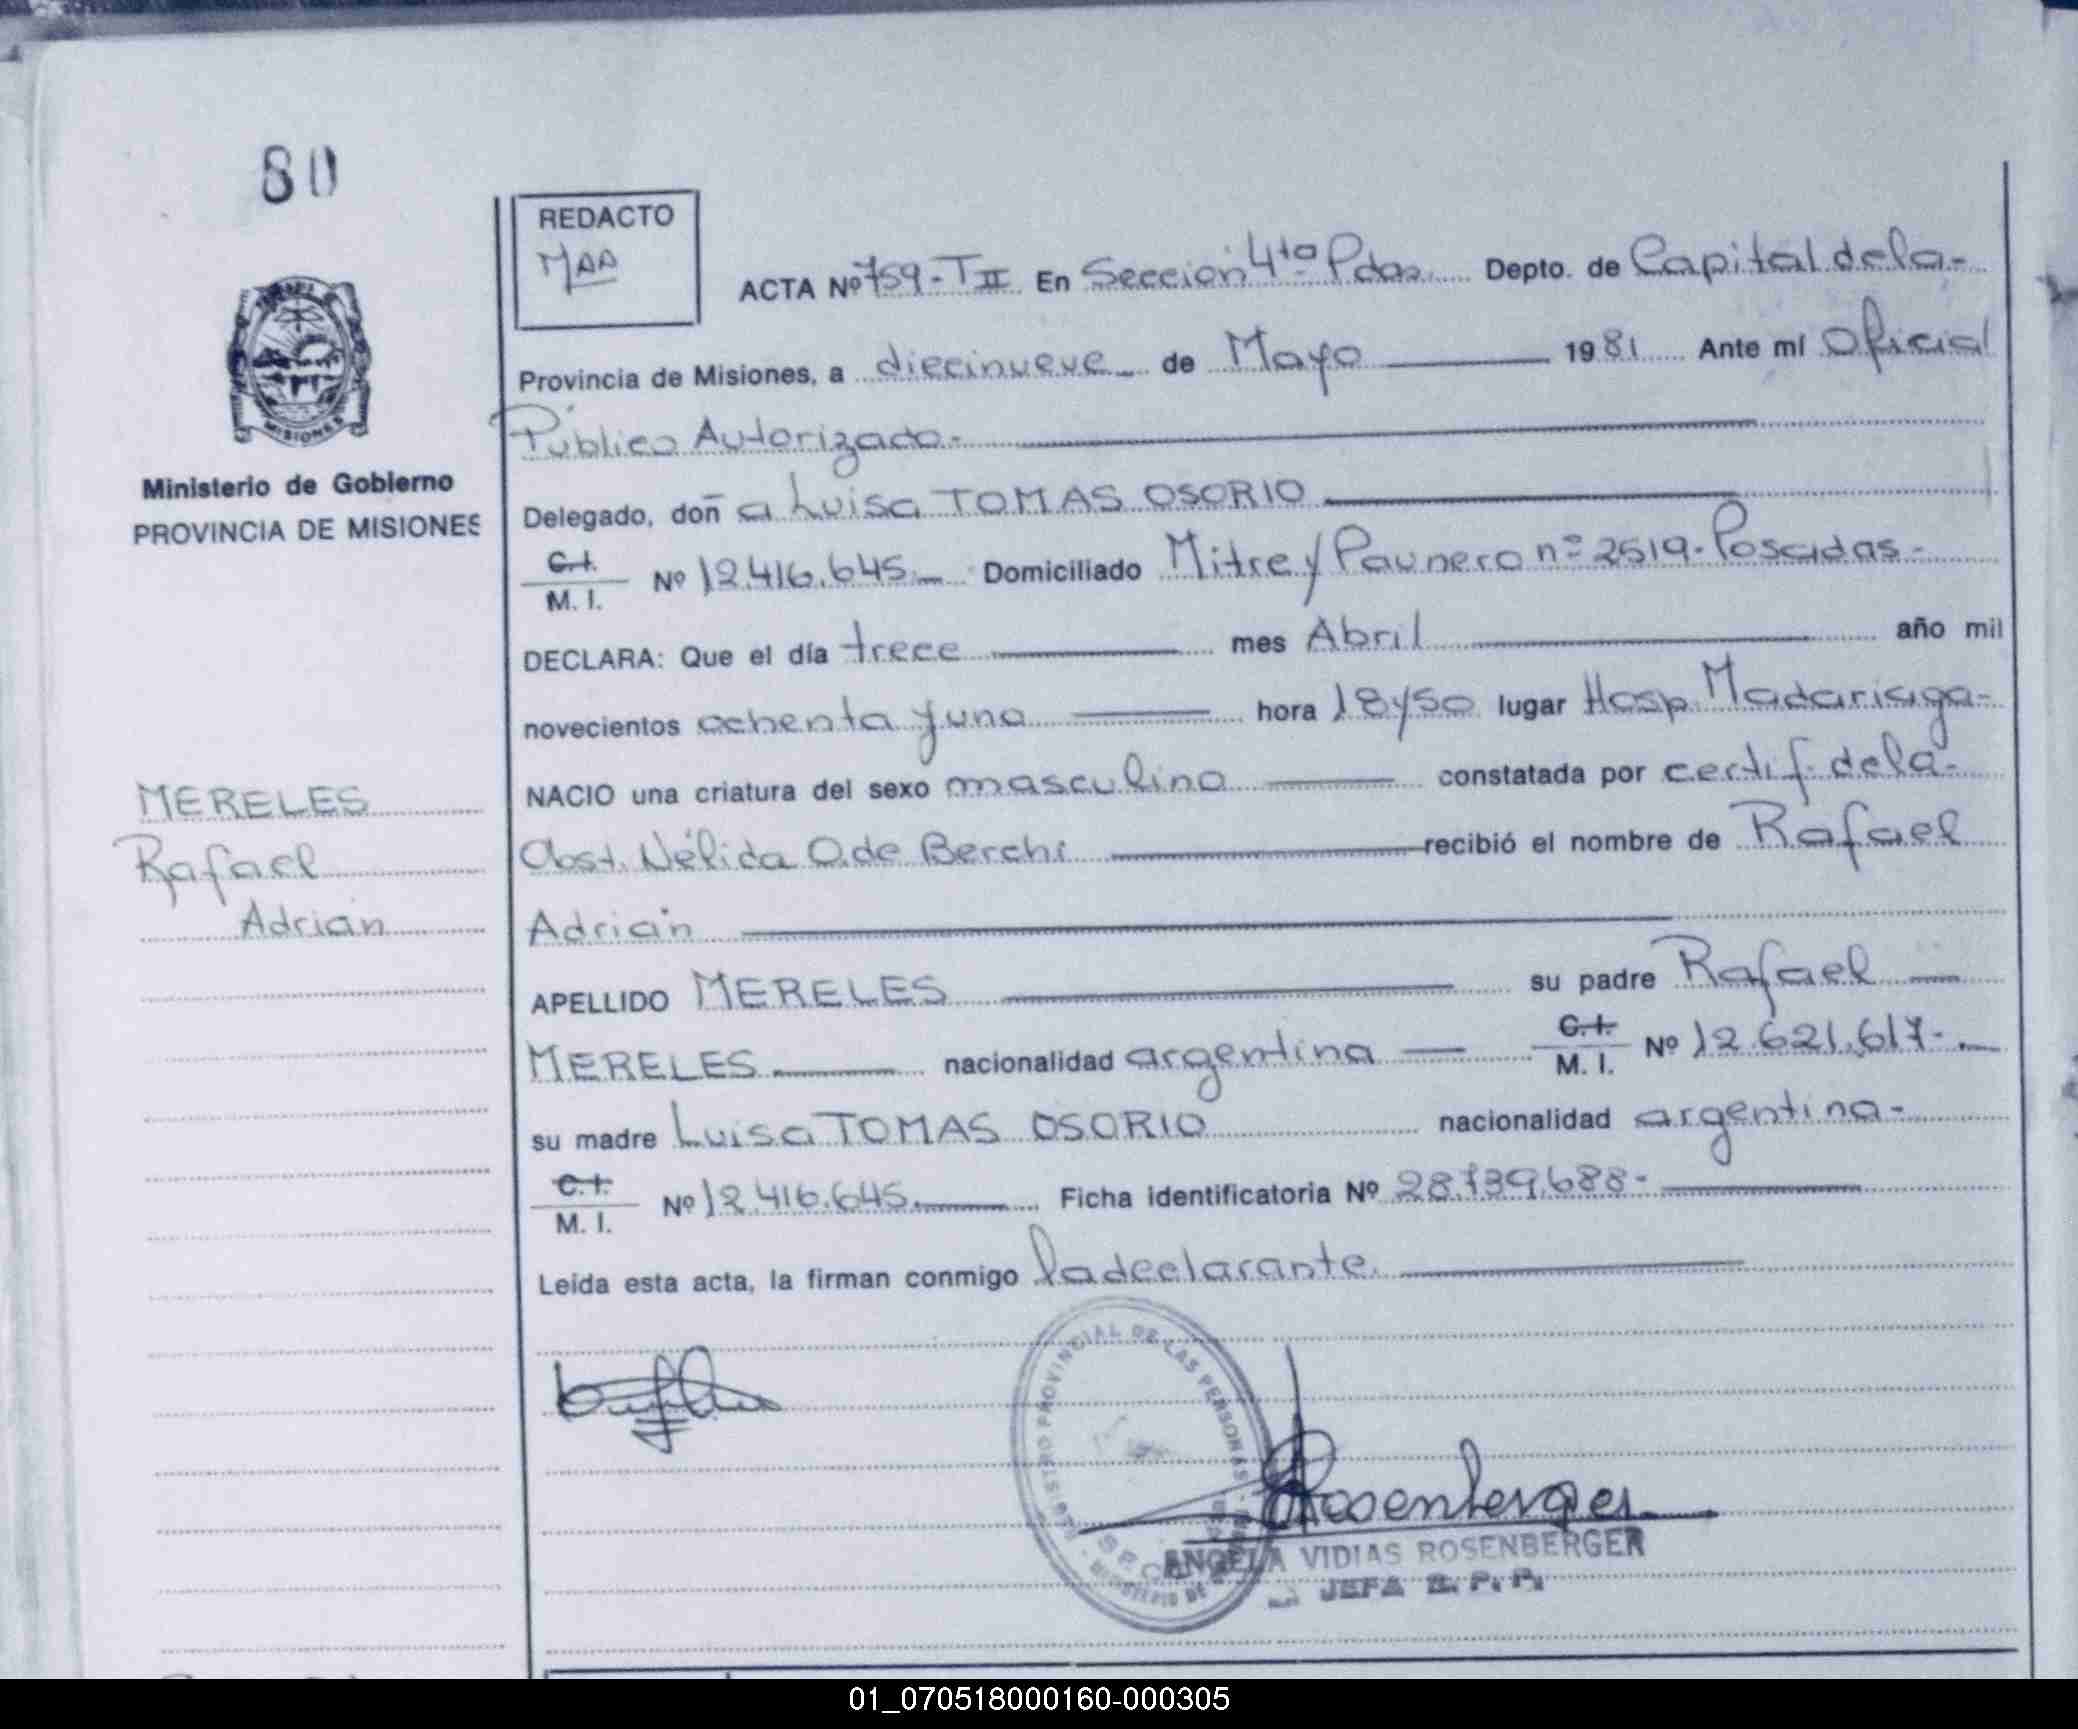 80
REDACTO
MAA
ACTA Nº 759-TII En Sección 4ta Pdas. Depto. de Capital de la-
Provincia de Misiones, a diecinueve de Mayo 1981 Ante mí Oficial
Público Autorizado.-
MISIONES
Ministerio de Gobierno
PROVINCIA DE MISIONES
Delegado, doñ a Luisa TOMAS OSORIO
C.I.
M. I. Nº 12.416.645.- Domiciliado Mitre y Paunero nº 2519-Posadas-
DECLARA: Que el día trece mes Abril año mil
novecientos ochenta y uno hora 18y50 lugar Hosp. Madariaga-
NACIO una criatura del sexo masculino constatada por certif. de la-
Obst. Nélida O. de Berchi recibió el nombre de Rafael
Adrián
APELLIDO MERELES su padre Rafael
MERELES nacionalidad argentina C.I.
M. I. Nº 12.621.617-.
su madre Luisa TOMAS OSORIO nacionalidad argentina-
C.I.
M. I. Nº 12.416.645. Ficha identificatoria Nº 28.739.688-
Leída esta acta, la firman conmigo la declarante.
MERELES
Rafael
Adrián
REGISTRO PROVINCIAL DE LAS PERSONAS
Rosenberger
ANGELA VIDIAS ROSENBERGER
JEFA R. P. P.
01_070518000160-000305